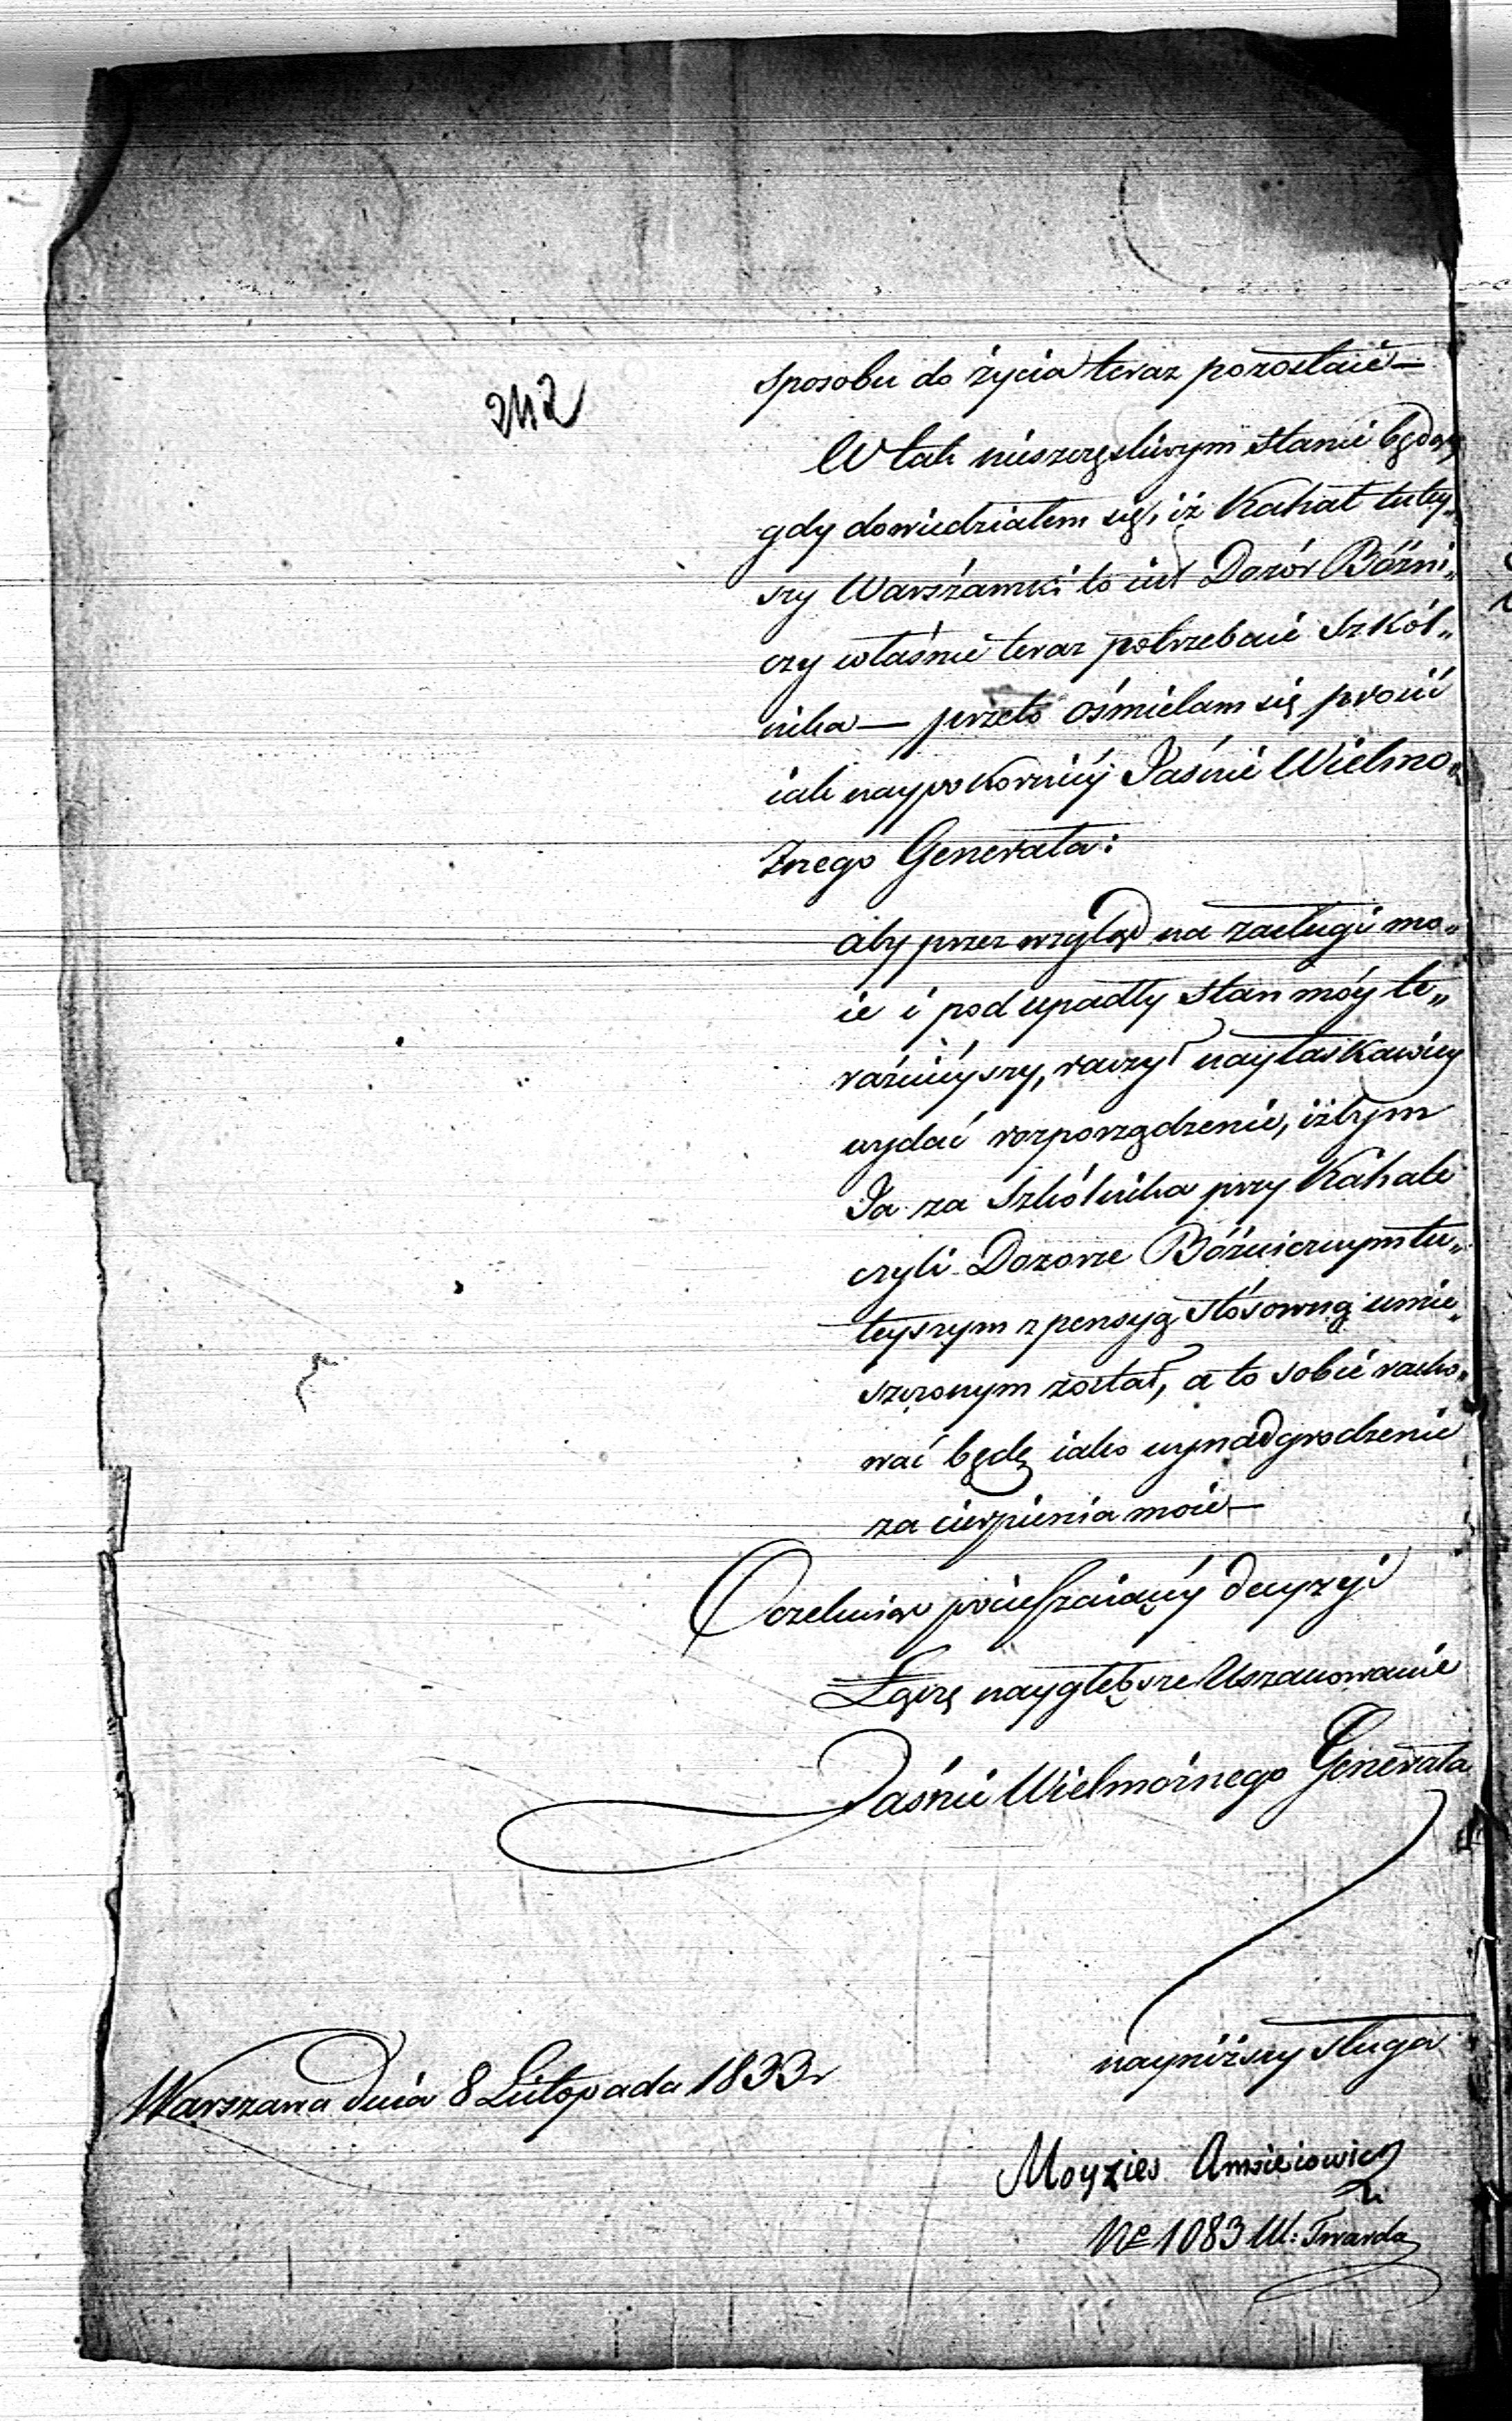 242
sposobu do życia teraz pozostaię —
W tak nieszczęśliwym stanie będąc
gdy dowiedziałem się, iż Kahał tutey„
szy Warszawski to iest Dozór Bóżni„
czy właśnie teraz potrzebuie Szkól„
nika — przeto ośmielam się prosić
iak naypokorniéy Jaśnie Wielmo„
żnego Generała:
aby przez wzgląd na zasługi mo„
ie i podupadły stan móy te„
raźnieyszy, raczył nayłaskawiey
wydać rozporządzenie, iżbym
Ja za Szkólnika przy Kahale
czyli Dozorze Bóżniczuym tu„
teyszym z pensyą stósowną umie„
szczonym został, a to sobie racho„
wać będę iako wynadgrodzenie
za cierpienia moie —
Oczekuiąc pocieszaiącéy decyzyi
Łączę naygłębsze Uszanowanie
Jaśnie Wielmożnego Generała
nayniższy sługa
Warszawa dnia 8 Listopada 1833 r
Moyzies
No 1083 Ul: Twarda